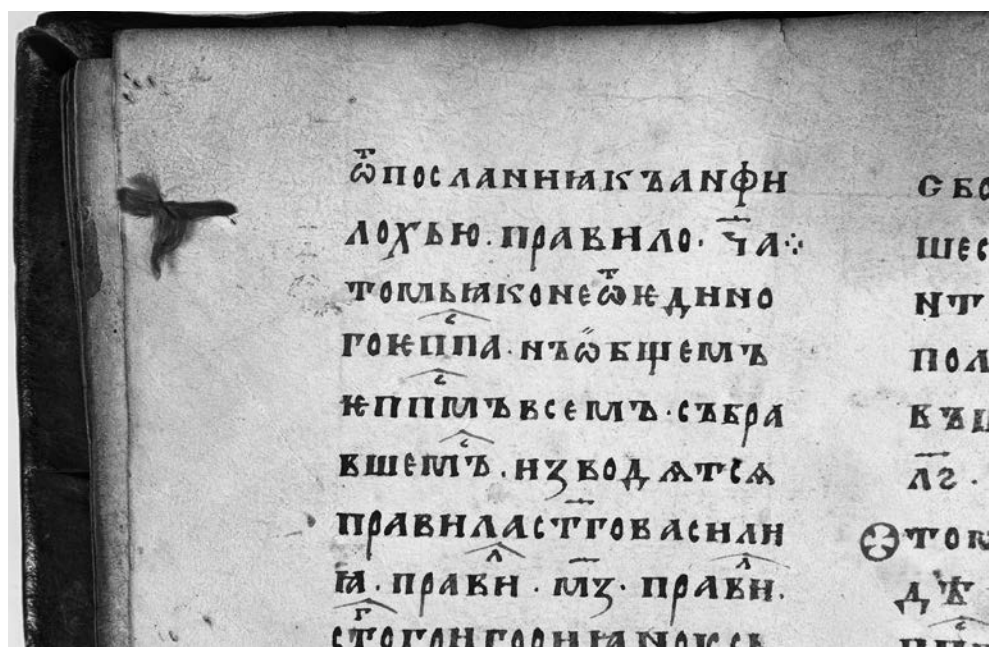 ѿпосланиꙗкъанфи
лохью·правило·ч҃а·:·
томьꙗконеѿѥдино
гоѥппⷭ҇а·нъѡбщемъ
ѥппⷭ҇мъвсемъ·събра
вшемъⷭ҇·изводѧтсѧ
правиласт҃говасили
ꙗ·правиⷧ҇·м҃з·правиⷧ҇·
сбо
шес
нт
пол
л҃г·
ток
дѣ